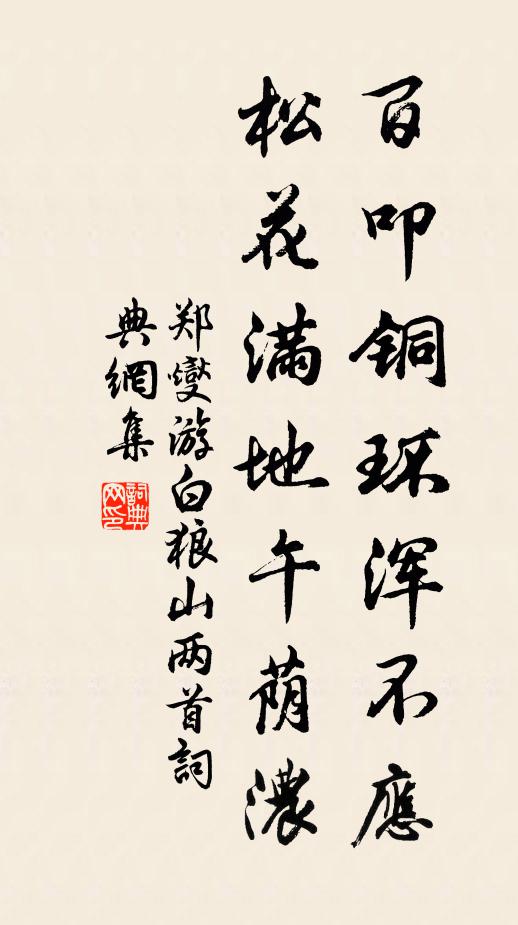 百叩铜环浑不應
松花满地午荫濃
郑燮游白狼山两首詞
典網集
詞典网印